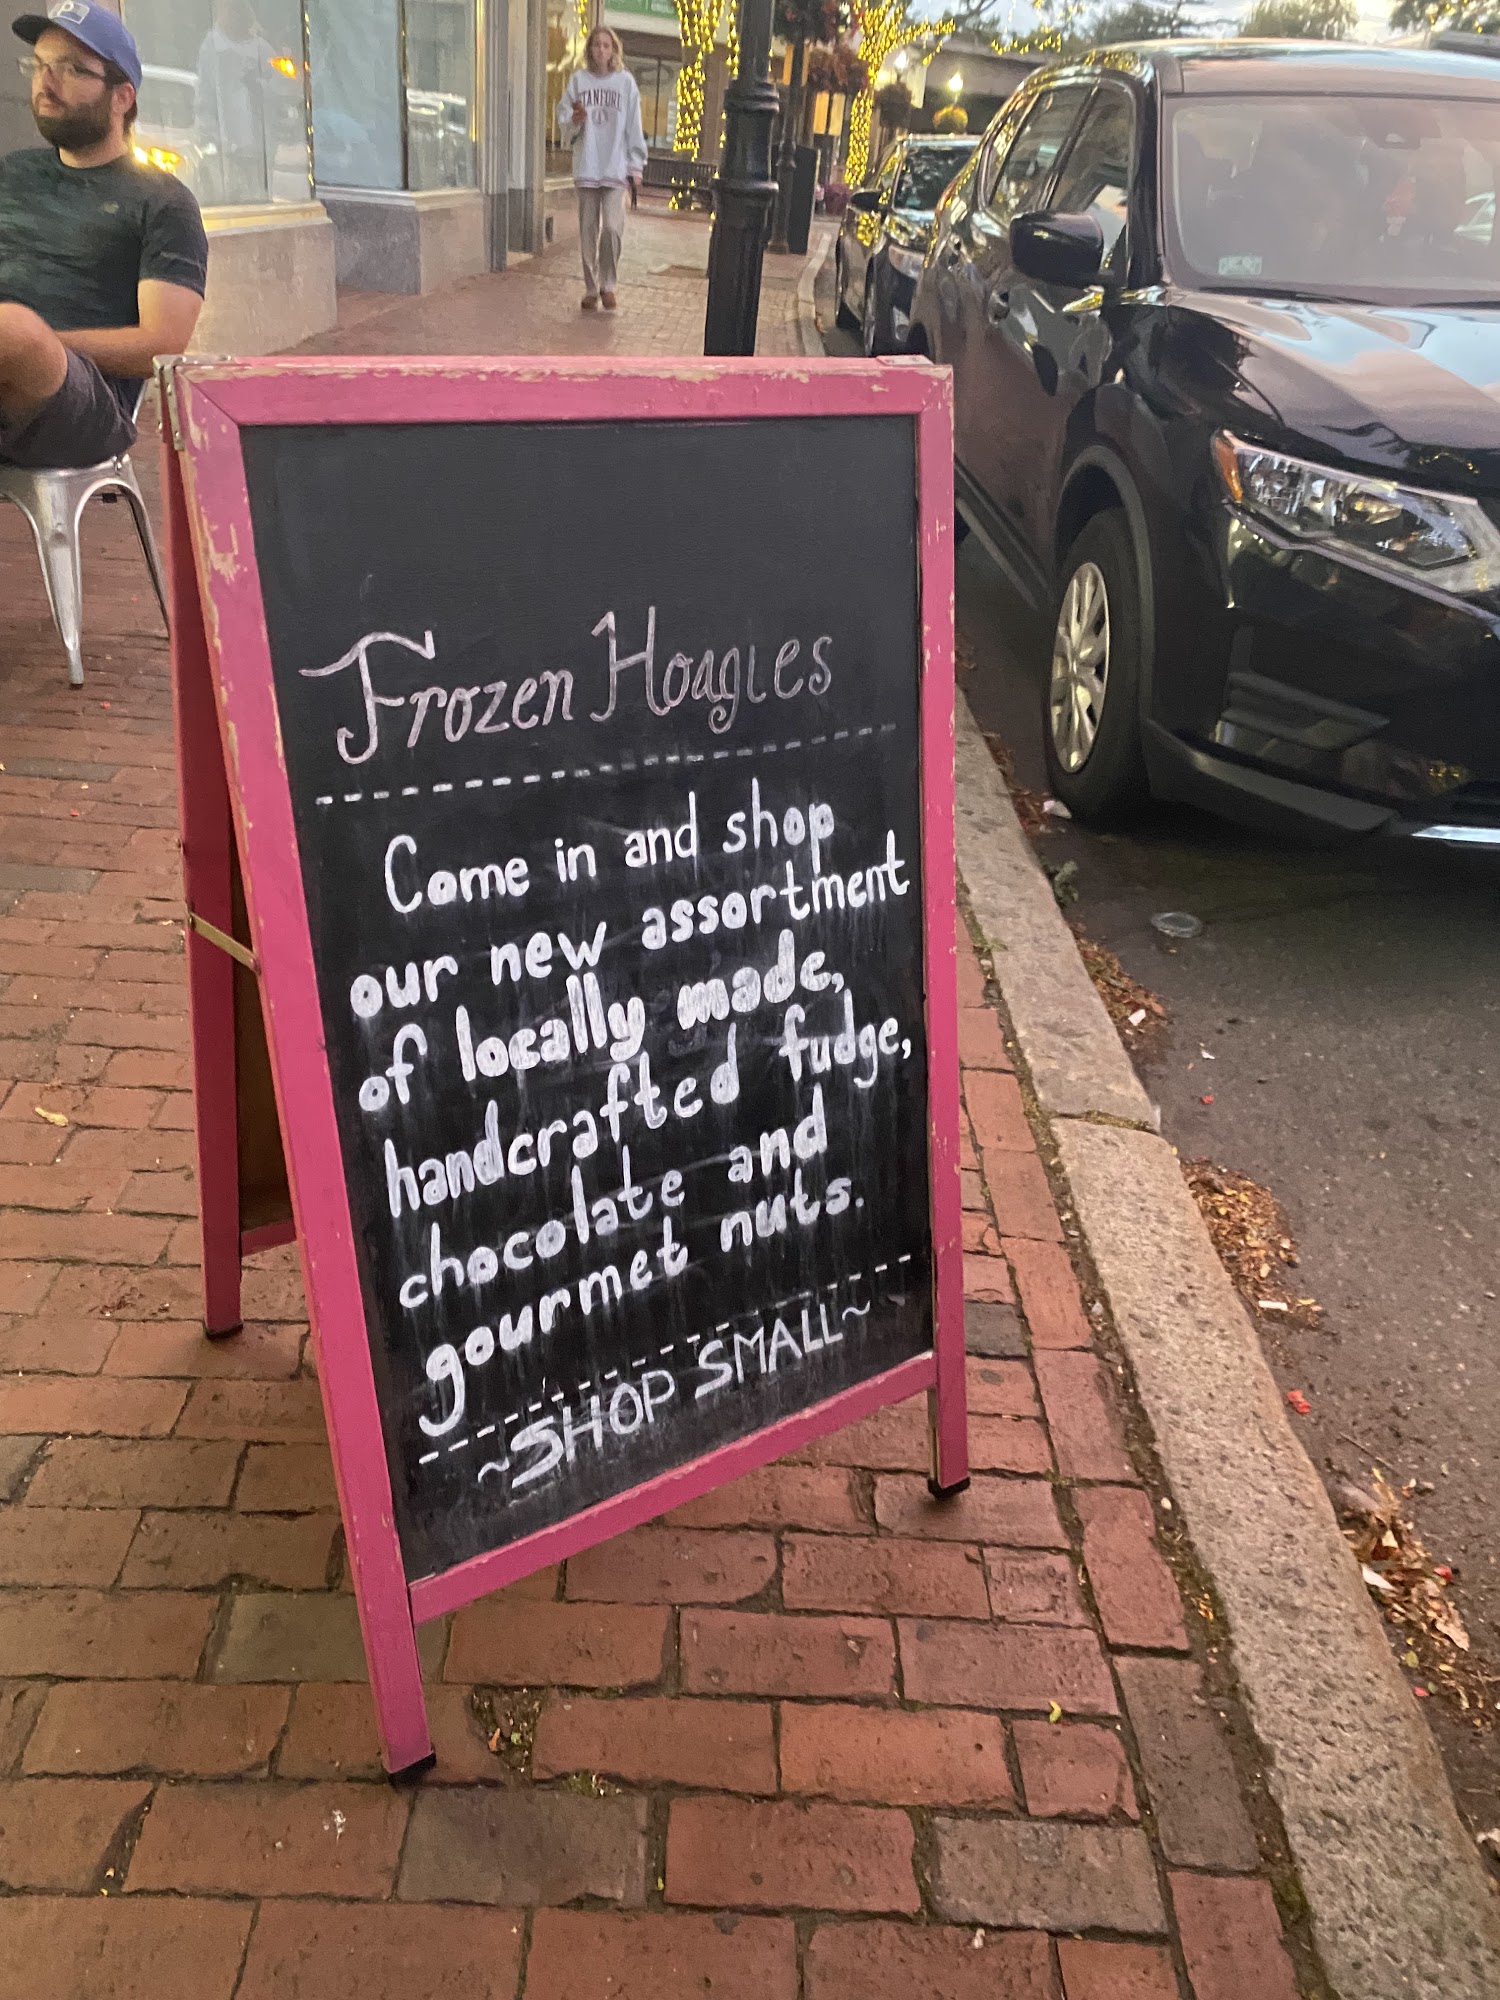 STANFORD
Frozen Hoagies
Come in and shop
our new assortment
of locally made,
handcrafted fudge,
chocolate and
gourmet nuts.
~SHOP SMALL~